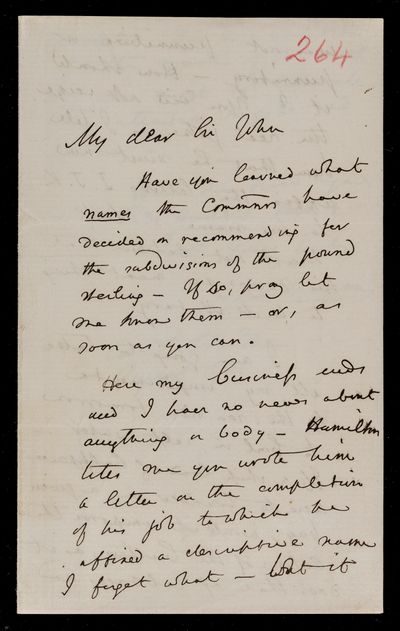 264
My dear Sir John
Have you learned what
names the Commrs have
decided on recommending for
the subdivisions of the pound
sterling – If so, pray let
me know them – or, as
soon as you can.
Here my business ends
and I have no news about
anything or body – Hamilton
tells me you wrote him
a letter on the completion
of his job to which he
affixed a descriptive name
I forget what – but it